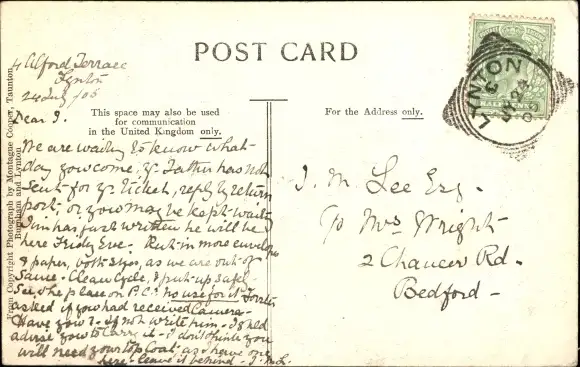 POST CARD
This space may also be used
for communication
in the United Kingdom only.
For the Address only.
From Copyright Photograph by Montague Cooper, Taunton,
Burnham and Lynton
LYNTON
4 Alford Terrace
Lynton
24 July /05
Dear J.
We are waiting to know what
day you come, yr Father has not
sent for yr ticket, reply by return
post, or you may be kept waiting
Jim has just written he will be
here Friday Eve. Put in more envelopes
& paper, both sizes, as we are out of
same. Clean Cycle, & put up safely
See the place on P.C.! no use for it
asked if you had received Camera.
Have you? if not write him. I shld
advise you to carry it. I don't think you
will need your top coat, as I have one
here. leave it behind.
J. M. Lee Esq.
c/o Mrs Wright
2 Chaucer Rd.
Bedford